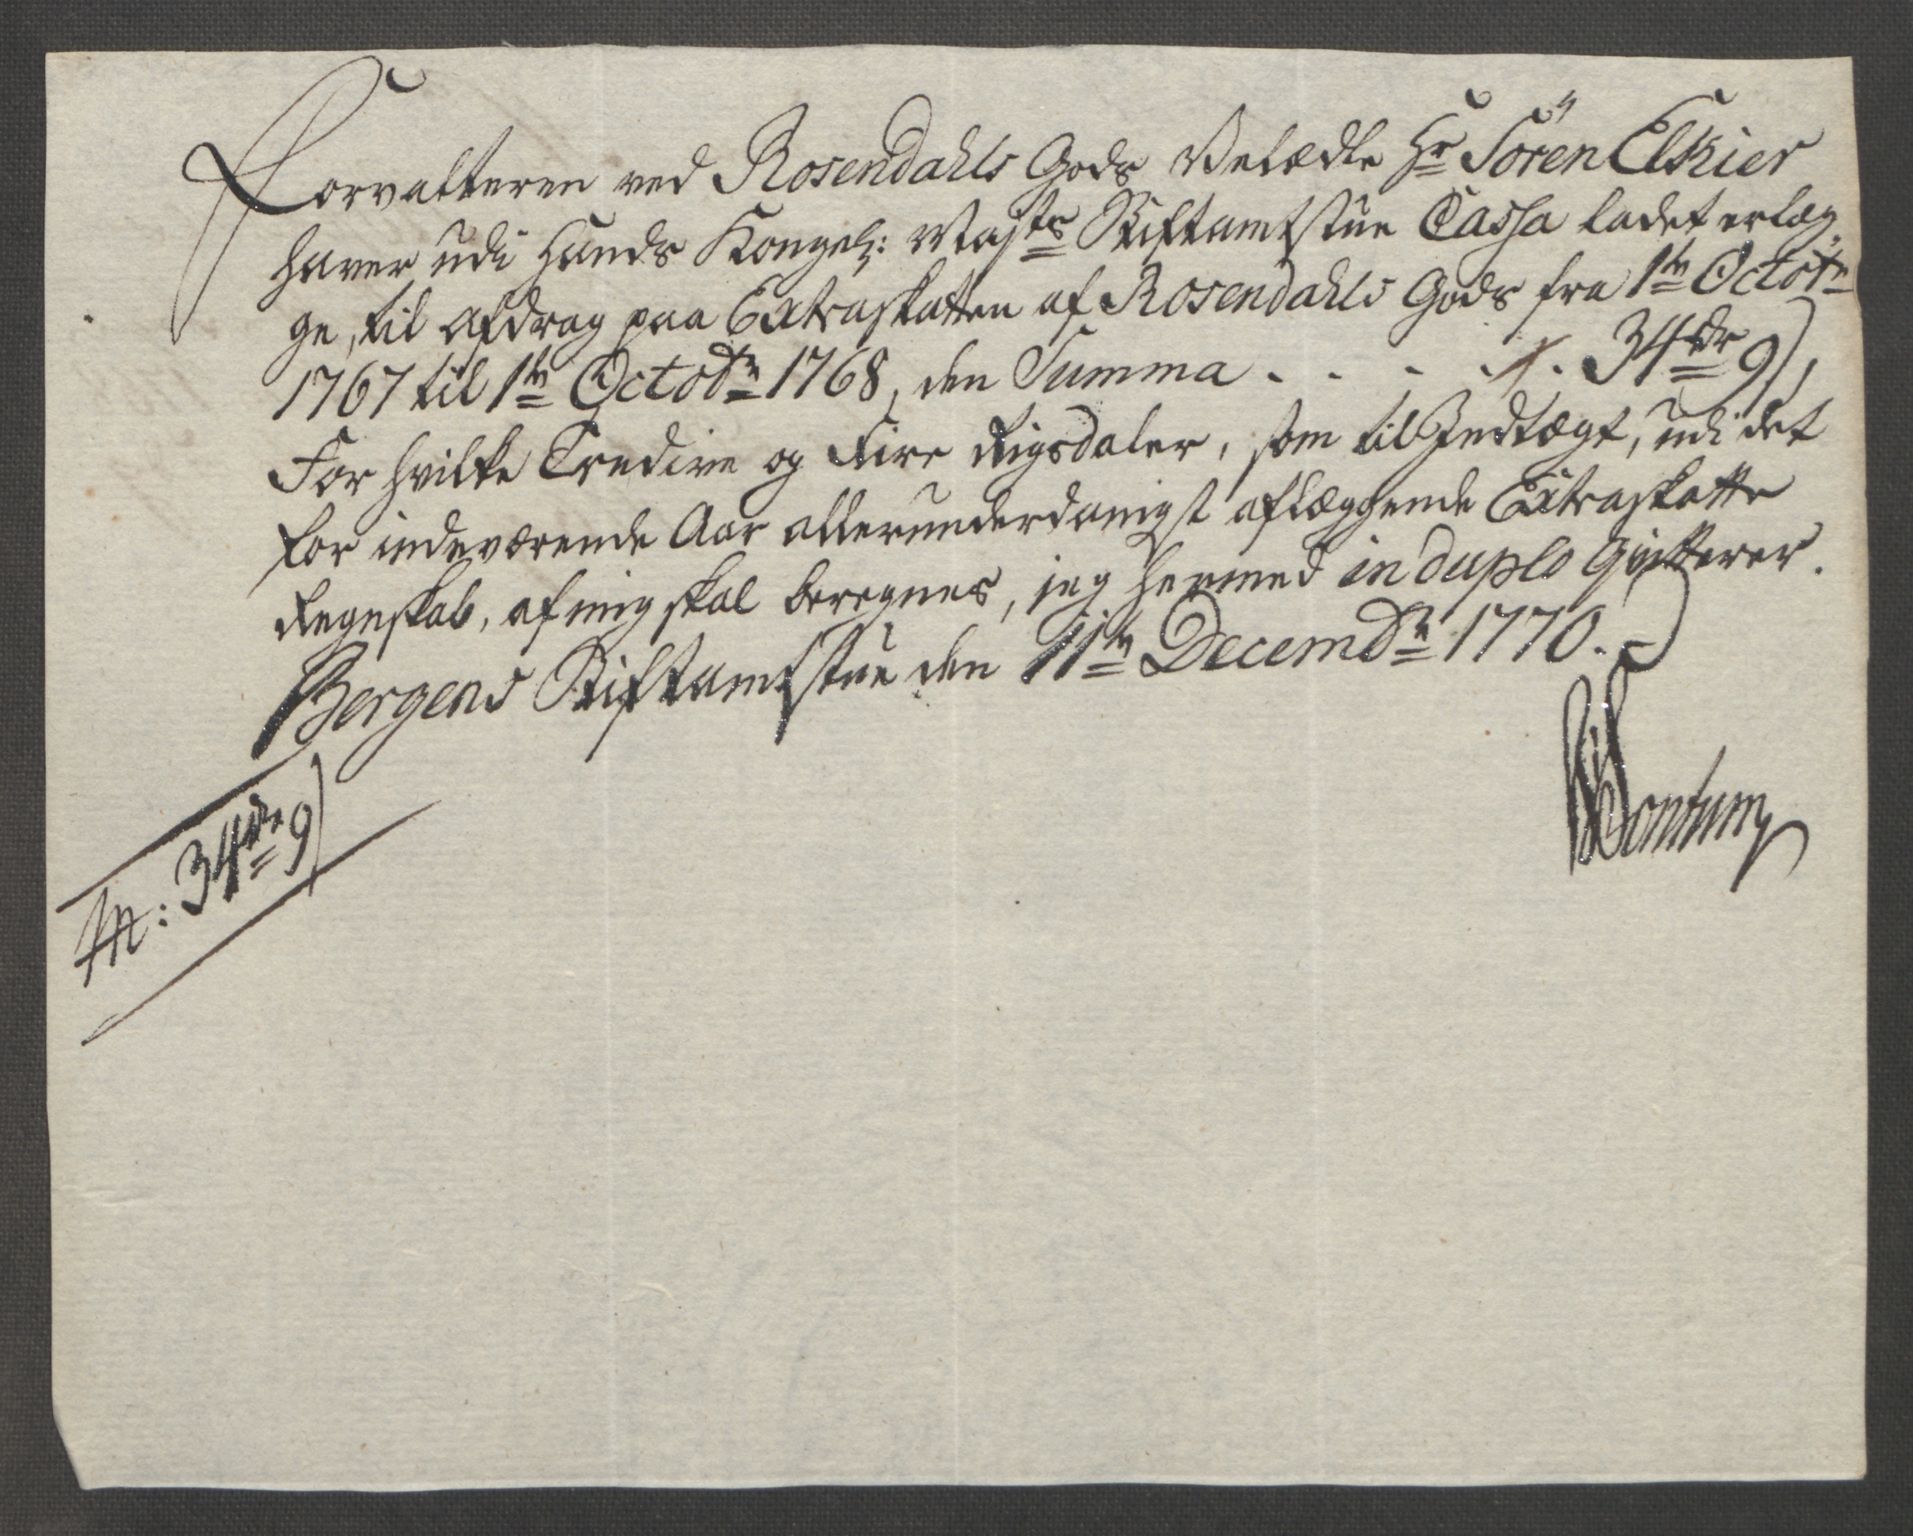 Forvalteren ved Rosendahls Gods Velædle Hr Sören Elkier
haver udi Hands Kongel: Majts Stiftamtstue Cassa ladet erlæg,
ge, til Afdrag paa Extraskatten af Rosendahls Gods fra 1te Octobr
1767 til 1te Octobr 1768, den Summa - - - . . 34 dr 9),
For hvilke Tredive og Fire Rigsdaler, som til Indtægt, udi det
for indeværende Aar allerunderdanigst aflæggende Extraskatte
Regnskab, af mig skal beregnes, jeg hermed in duplo Qvitterer.
Bergens Stiftamtstue den 11te Decembr 1770.
Fontum
34 dr 9)